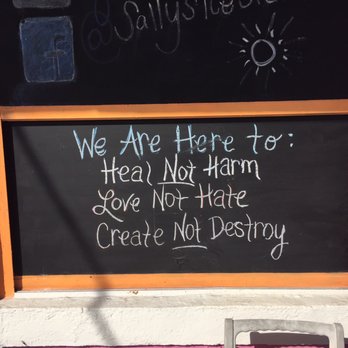 f
We Are Here to:
Heal Not Harm
Love Not Hate
Create Not Destroy